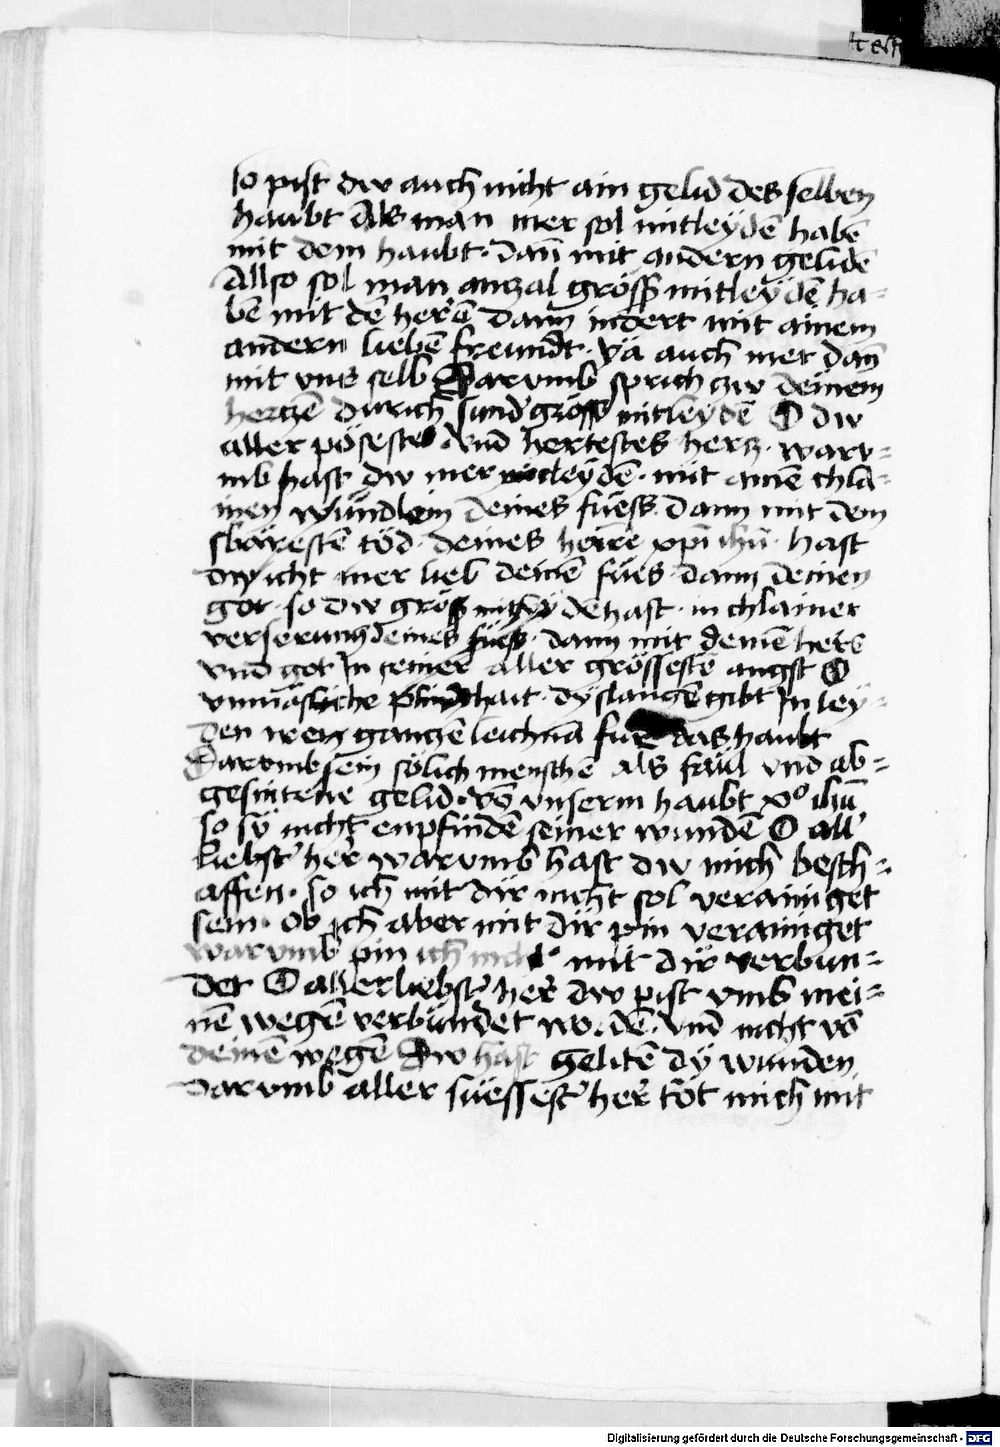 so pist dw auch nicht ain gelid des selben
haubt Als man mer sol mitleydē habē
mit dem haubt · dan̄ mit andern gelidē
Allso sol man anczal gröss mitleydē ha=
bē mit dē herē dann indert mit ainem
andern liebē freundt · yä auch mer dan̄
mit vns selb Darvmb sprich zw deinem
hertzē durich sund' gröss mitleydē O dw
aller pösestes vnd hertestes hertz · warv=
mb hast dw mer mitleydē · mit ainē chla=
inen wündlein deines fuess · Dann mit dem
swärestē töd · deines herrē xp̄i ih̄u · hast
dw icht mer lieb deinē fues · dann deinen
got · so dw gröss mitleydē hast · in chlainer
verserung deines fuess · dann mit deinē hers
vnd got In seiner aller grössestē angst O
vnmäsliche plindthait · dy slangē gibt In ley=
den iren ganczen leichnā fur das haubt
Darvmb sein sölich menschē als faul vnd ab=
gesnitene gelid · vō vnserm haubt xº ih̄u
so sy nicht enpfindē seiner wunden O all'
liebst' her warvmb hast dw mich besch=
affen · so ich mit dir nicht sol verainiget
sein · Ob ich aber mit dir pin verainiget
warvmb pin ich nicht mit dir verbun=
det O allerliebst' her dw pist vmb mei=
nē wegē verbundet wordē · vnd nicht vō
deinē wegē Dw hast gelitē dy wunden
darvmb aller suessest' her töt mich mit
Digitalisierung gefördert durch die Deutsche Forschungsgemeinschaft - DFG